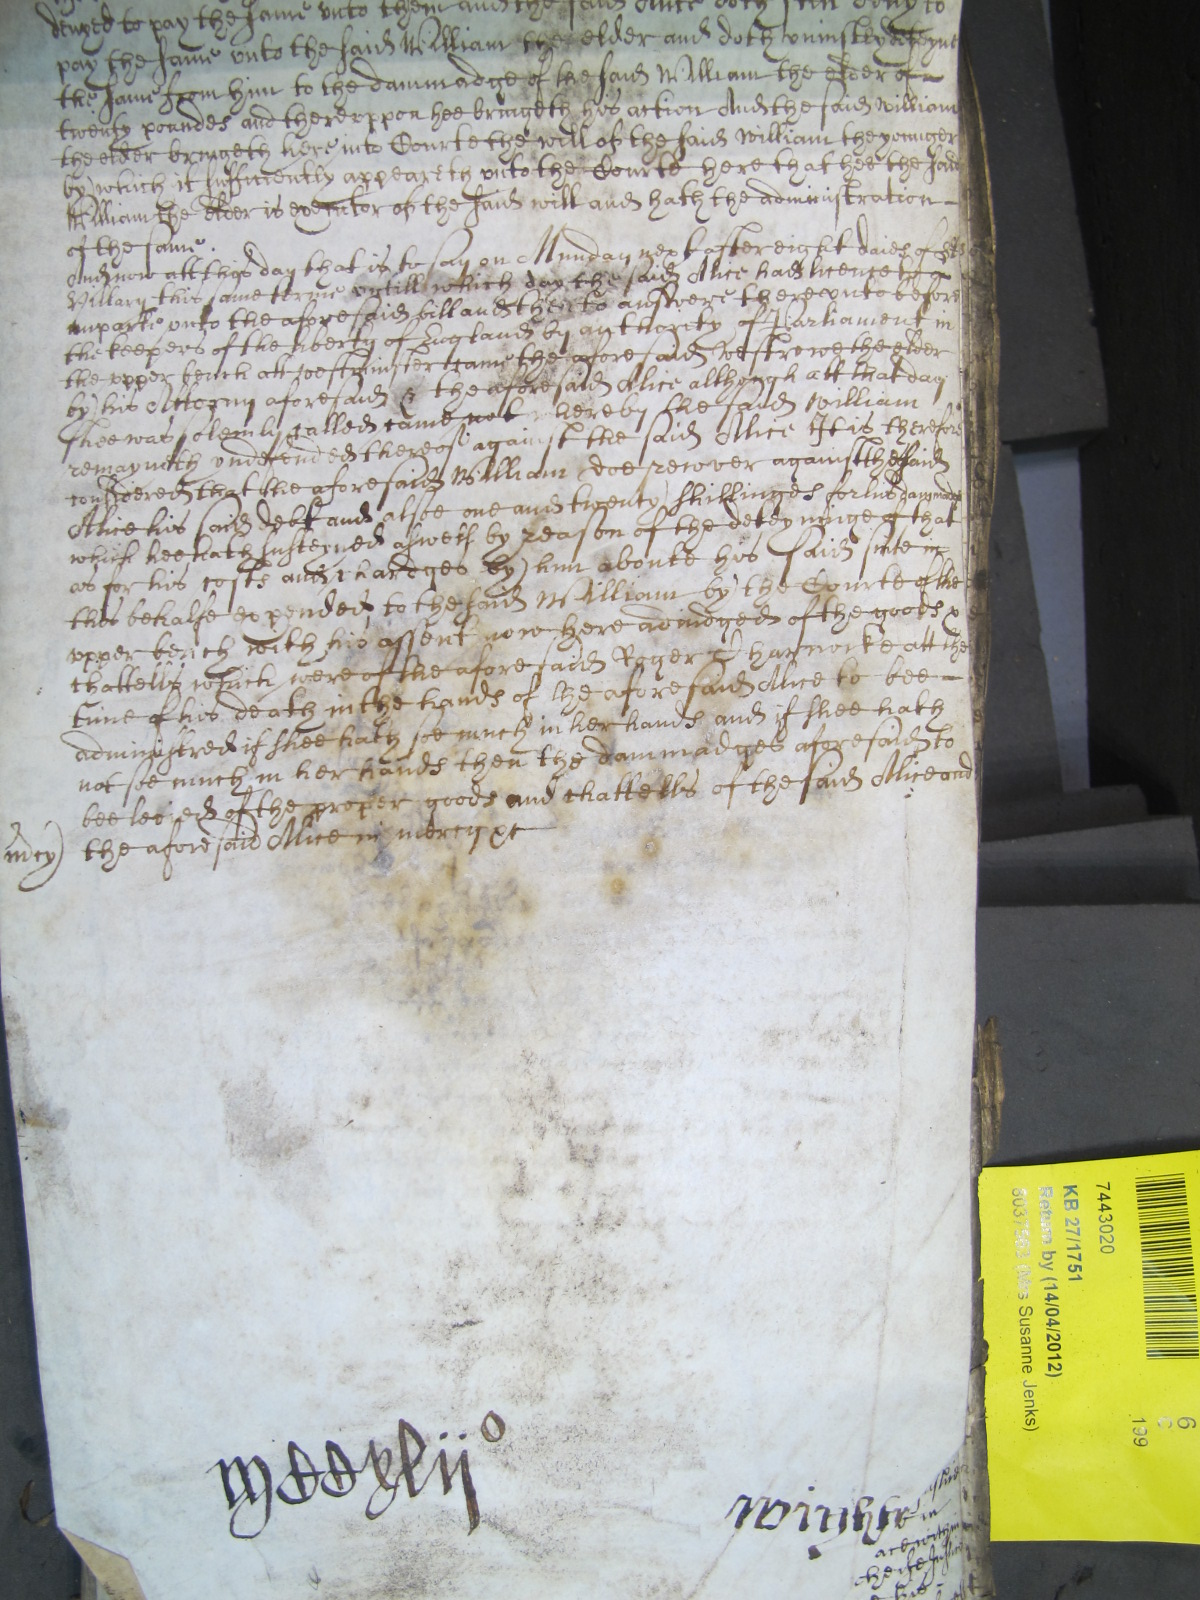 denyed to pay the same unto them and the said Alice doth still deny to
pay the same unto the said William the elder and doth uniustly deteyne
the same from him to the dammadge of the said William the elder of
twenty poundes and thereuppon hee bringeth his action And the said William
the elder bringeth here into Courte the will of the said William the younger
by which it sufficiently appeareth unto the Courte here that hee the said
William the elder is executor of the said will and hath the administration
of the same.
And now att this day that is to say on Munday next after eight daies of St
Hillary this same terme untill which day the said Alice had licence to
imparle unto the aforesaid bill and then to answere thereunto before
the keepers of the liberty of England by authority of Parliament in
the upper bench att Westminster came the aforesaid the elder
by his Attorny aforesaid & the aforesaid Alice although att that day
shee was solemly called came not whereby the said William
remayneth undefended thereof against the said Alice It is therefore
considered that the aforesaid William doe recover against the said
Alice his said debt and alsoe one and twenty shillinges for his dammadges
which hee hath susteyned aswell by reason of the deteyninge of that
as for his costs and chardges by him aboute his said suite in
this behalfe expended to the said William by the Courte of the
upper bench with his assent now here adiudged of the goods &
chattells which were of the aforesaid Roger Charnocke att the
time of his death in the hands of the aforesaid Alice to bee
administred if shee hath soe much in her hands and if shee hath
not soe much in her hands then the dammadges aforesaid to
bee levied of the proper goods and chattells of the said Alice and
mcy) the aforesaid Alice in mercy &c
mccxlijo
7443020
KB 27/1751
Return by (14/04/2012)
(Mrs Susanne Jenks)
6
C
199